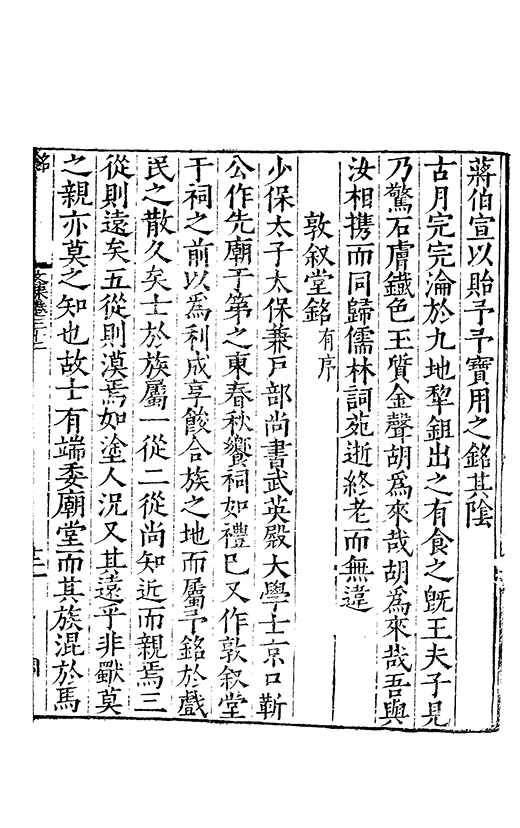 蔣伯宣以貽予予寶用之銘其隂
古月完完淪於九地犁鉏出之有食之旣王夫子見
乃驚石膚鐵色玉質金聲胡爲來哉胡爲來哉吾與
汝相携而同歸儒林詞苑逝終老而無違
敦叙堂銘有序
少保太子太保兼戸部尚書武英殿大學士京口靳
公作先廟于第之東春秋饗祠如禮已又作敦叙堂
于祠之前以爲利成享餕合族之地而屬予銘於戲
民之散久矣士於族屬一從二從尚知近而親焉三
從則遠矣五從則漠焉如塗人況又其遠乎非獨莫
之親亦莫之知也故士有端委廟堂而其族混於馬
銘